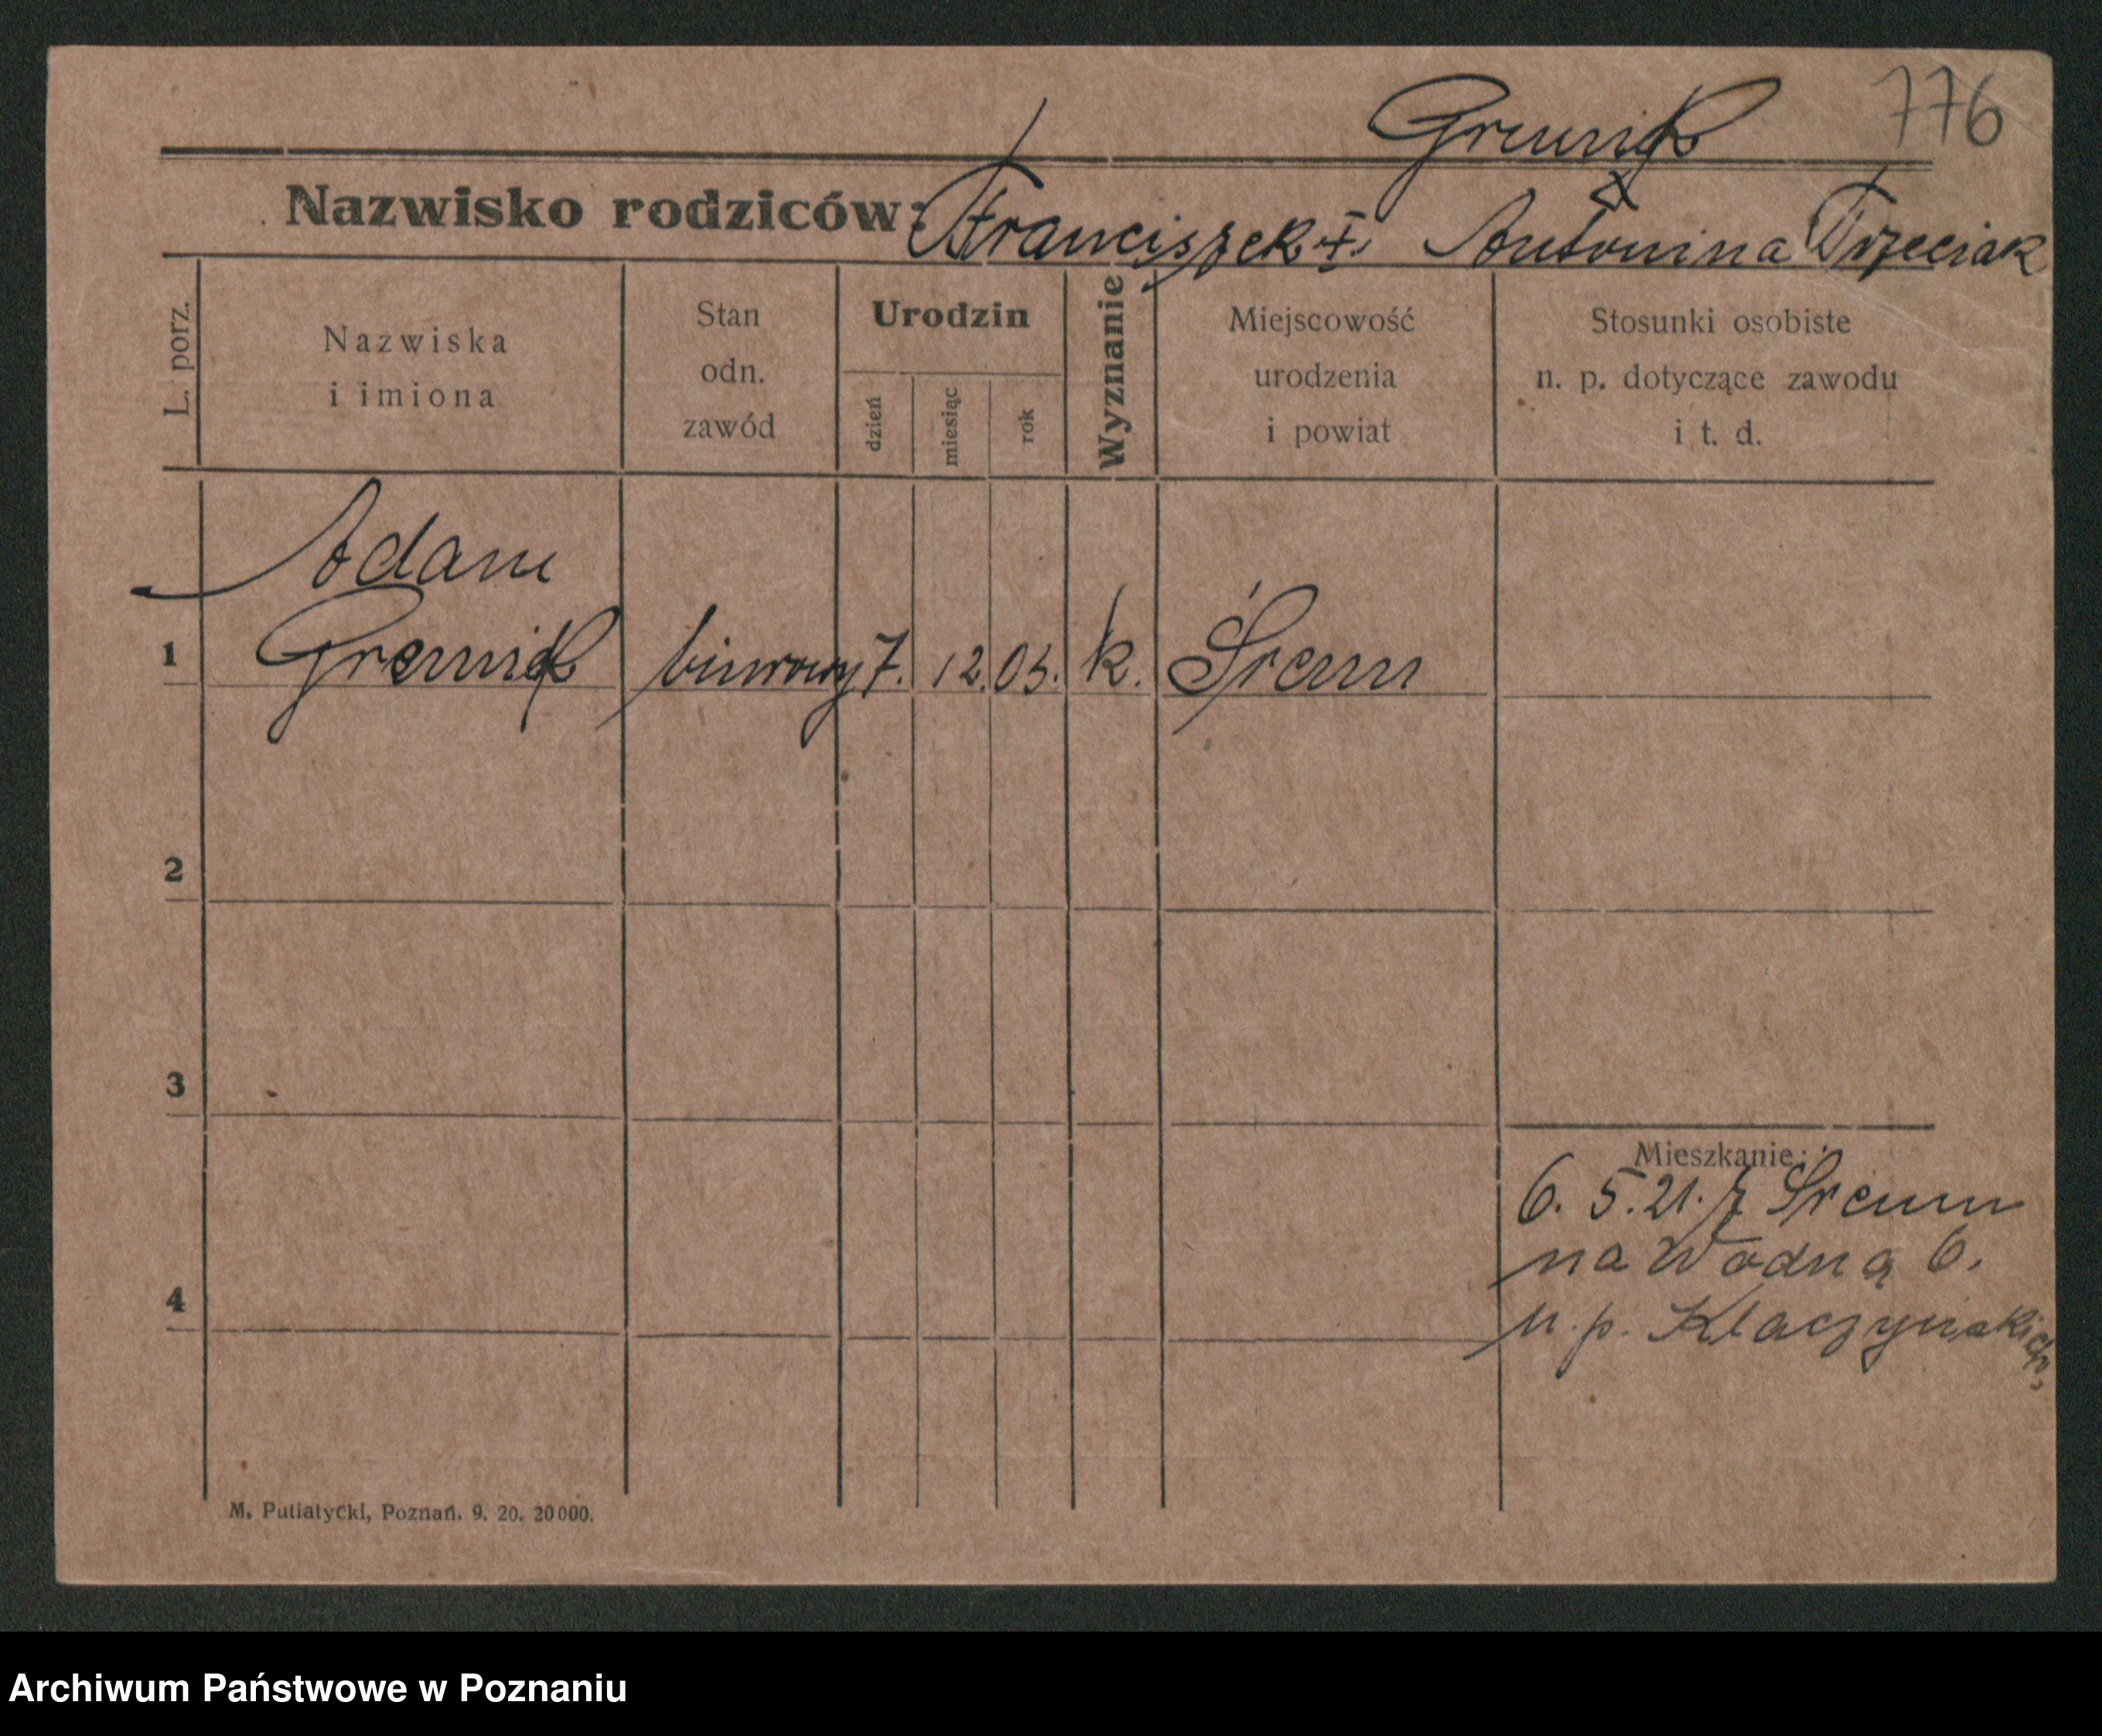 776
Nazwisko rodziców: Franciszek Antonina Trzeciak
L. porz.
Nazwiska i imiona
Stan odn. zawód
Urodzin
dzień
miesiąc
rok
Wyznanie
Miejscowość urodzenia i powiat
Stosunki osobiste n. p. dotyczące zawodu i t. d.
Adam
1 biurowy 7. 12. 05. k. Śrem
2
3
Mieszkanie:
6. 5. 21. z Śrem
na Wodną 6.
4
u. p. Klaczyńskich
M. Putiatycki, Poznań. 9. 20. 20000.
Archiwum Państwowe w Poznaniu